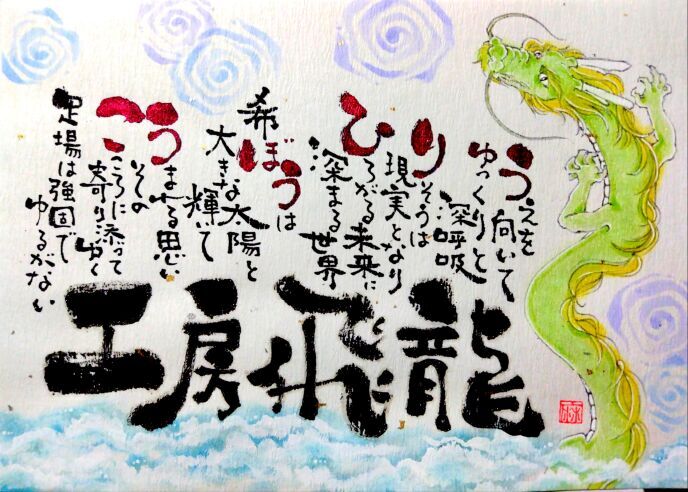 うえを向いて
ゆっくりと
深呼吸
りそうは
現実となり
ひろがる未来に
深まる世界
希ぼうは
大きな太陽と
輝いて
うまれる思い
その
こころに添って
寄りゆく
足場は強固で
ゆるがない
工房飛龍